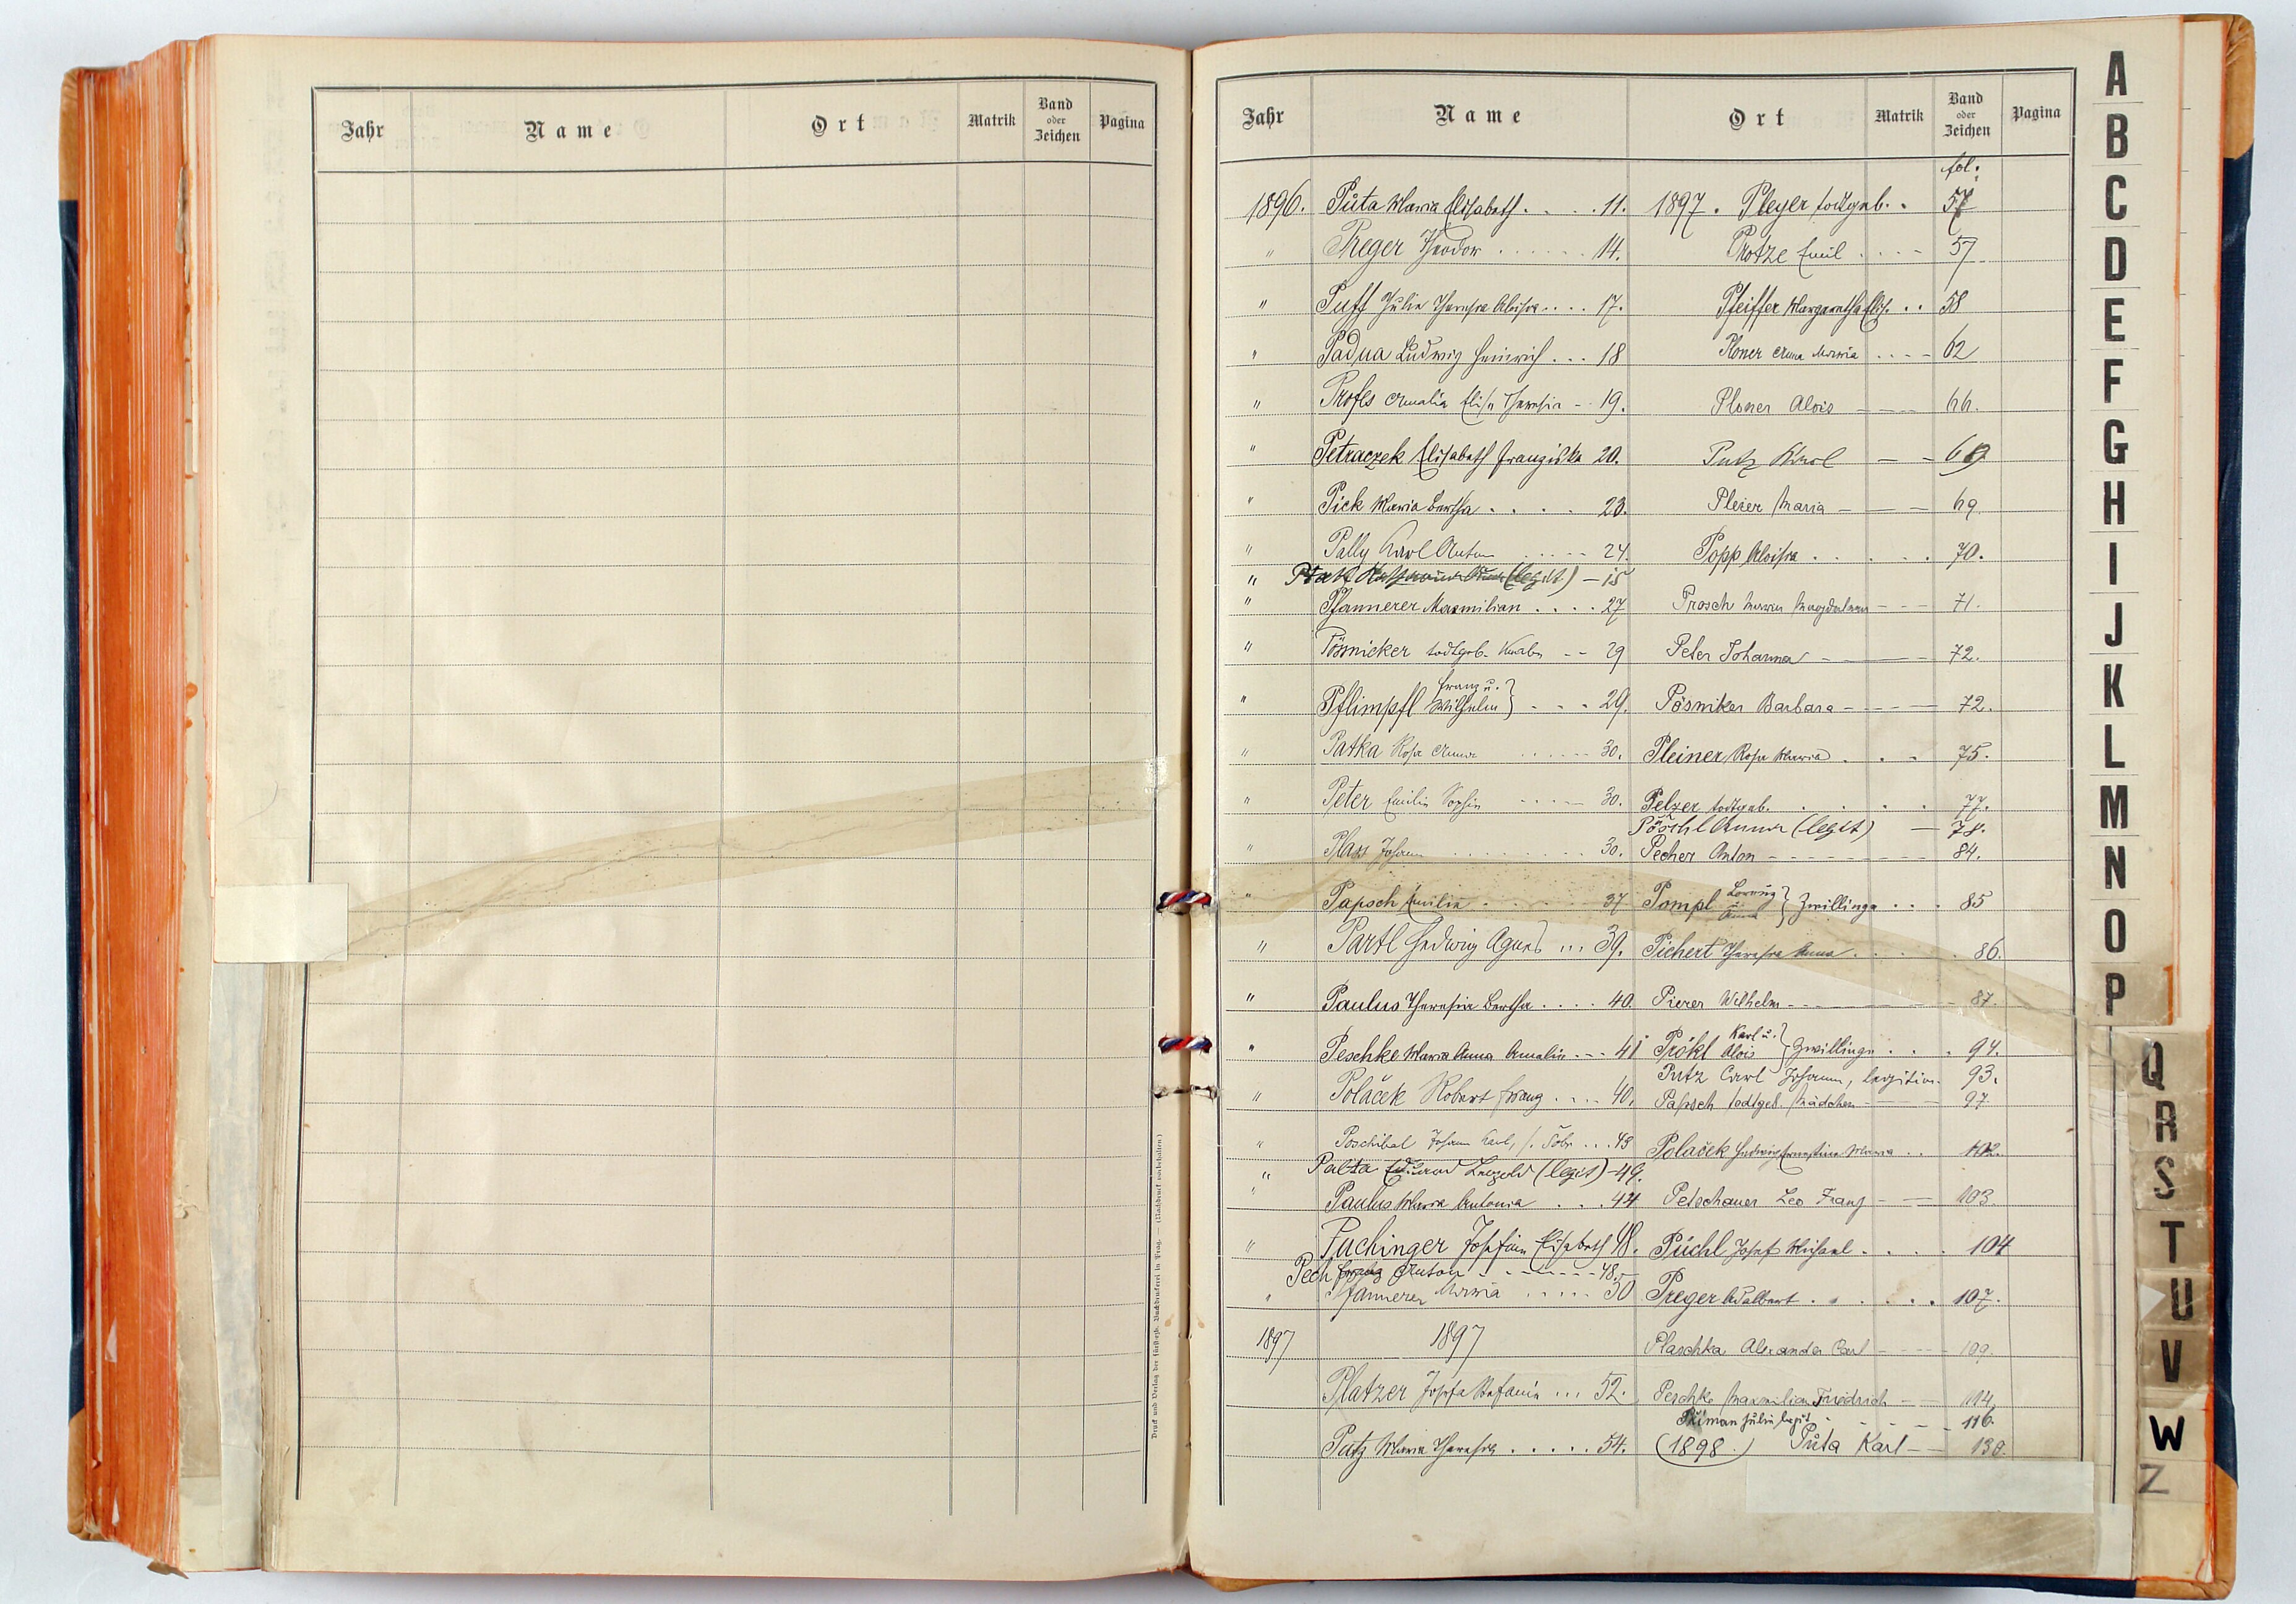 Jahr Name Ort Matrik Band oder Zeichen Pagina
Druck und Verlag der fürsterzb. Buchdruckerei in Prag. — (Nachdruck vorbehalten.)
Jahr Name Ort Matrik Band oder Zeichen Pagina
fol.
1896. Půta Maria Elisabeth . . . . 11. 1897. Pleyer todtgeb. . 57
" Preger Theodor . . . . . . 14. Protze Emil . . . . 57
" Puff Julie Theresia Aloisia . . . . 17. Pfeiffer Margaretha Elis. . . 58
" Padua Ludwig Heinrich . . . 18 Ploner Anna Maria . . . . 62
" Profes Amalia Elise Theresia - 19. Ploner Alois — — 66.
" Petraczek Elisabeth Franziska 20. Putz Karl — - 69
" Pick Maria Bertha . . . . 23. Pleier Maria — — 69.
" Pally Karl Anton . . . . . 24. Popp Aloisia . . . . . 70.
" (legit) — 15
" Pfannerer Maxmilian . . . . 27 Prosch Maria Magdalena — - 71.
" Pösnicker todtgeb. Knabe - - 29 Peter Johanna — — 72.
" Pflimpfl Franz u. Wilhelm } - - - 29. Pösniker Barbara - - - - 72.
" Patka Rosa Anna . . . . . 30. Pleiner Rosa Maria . . . 75.
" Peter Emilie Sophie . . . . . 30. Pelzer todtgeb. . . . . 77.
Pöschl Anna (legit) — 78.
" Plass Johann . . . . . . 30. Pecher Anton - - - - - - 84.
" Papsch Emilie . . . . . 37 Pompl Anna } Zwillinge . . . 85
" Partl Hedwig Agnes ... 39. Pichert Theresia Anna . . . . 86.
" Paulus Theresia Bertha . . . . 40. Pierer Wilhelm - - - - - 87.
" Peschke Maria Anna Amalie - - - 41 Prökl Karl u. Alois } Zwillinge . . . 94.
Putz Carl Johann, legitim. 93.
" Poláček Robert Franz . . . . 40. Papsch todtgeb. Mädchen — 97
" Poschibal Johann Karl, . . . 43 Polaček Hedwig Ernestine Maria . . 102.
" Eduard Leopold (legit) - 49.
" Paulus Maria Antonia . . . 44 Petschauer Leo Franz — — 103.
" Puchinger Josefine Elisabeth 48. Püchl Josef Michael . . . . 104
Pech Franz Anton - - - - - 48.
" Pfannerer Maria . . . . . 50 Preger Adalbert . . . . . . 107.
1897 1897 Plaschka Alexander Carl - - - - 109.
Platzer Josefa Stefanie ... 52. Peschke Maxmilian Friedrich — — 114.
Julie legit - - - - 116.
Putz Maria Theresia . . . . . 54. (1898.) Půta Karl — — 130.
A
B
C
D
E
F
G
H
I
J
K
L
M
N
O
P
Q
R
S
T
U
V
W
Z